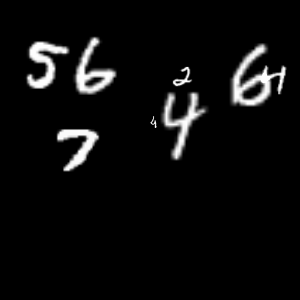 5 6 2 6 4
7 4 4